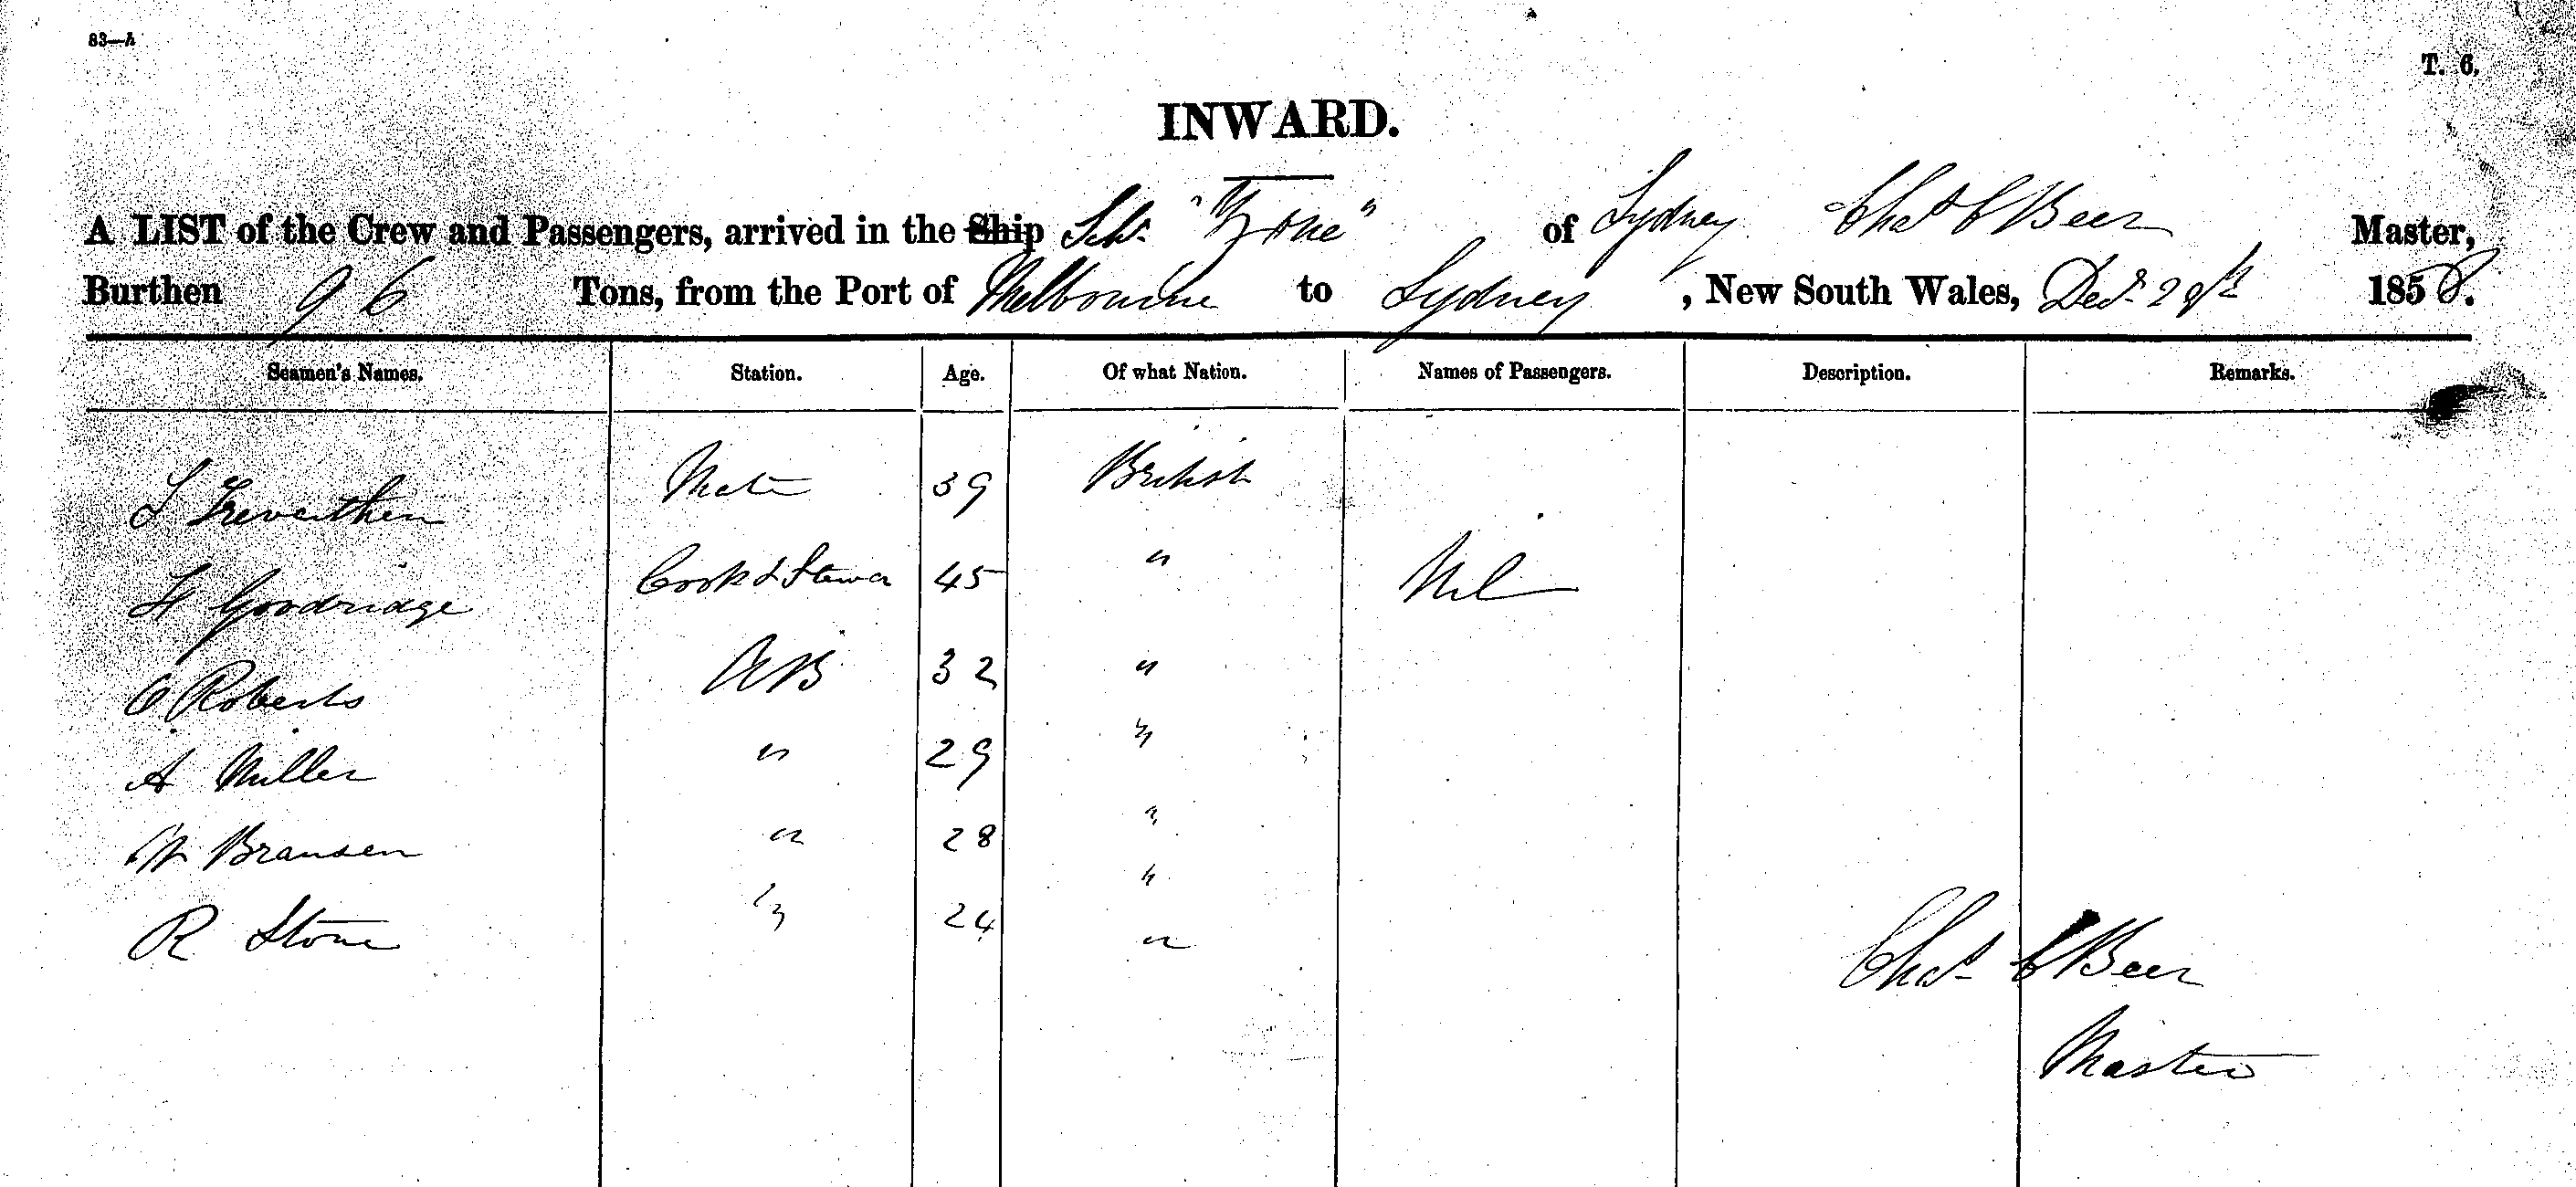 83—h
T. 6.
INWARD.
A LIST of the Crew and Passengers, arrived in the Ship Schr of Sydney Chas C Beer Master,
Burthen 96 Tons, from the Port of Melbourne to Sydney, New South Wales, Decr 29th 1858.
Seamen's Names. Station. Age. Of what Nation. Names of Passengers. Description. Remarks.
Mate 39 British
H Goodridge Cook & Stewd 45 " Nil
C Roberts AB 32 "
A Miller " 29 "
W Bransen " 28 "
R Stone " 24 "
"
Chas C Beer
Master